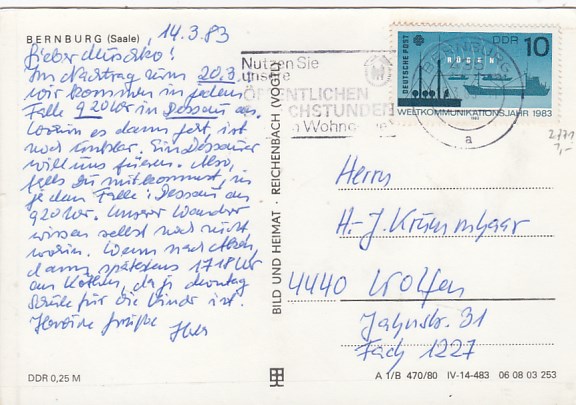 BERNBURG (Saale)
14.3.83
Lieber Muschko!
Im Nachtrag zum 20.3.
wir kommen in jedem
Falle 9 20 Uhr in Dessau an.
Wohin es dann geht, ist
noch unklar. Ein Dessauer
will uns führen. Also,
falls Du mitkommst, in
jedem Falle: Dessau an
9 20 Uhr. Unser Wander
wissen selbst noch nicht
wohin. Wann nach
dann spätestens 17 18 Uhr
an Köthen, da ja Montag
Schule für die Kinder ist.
Herzliche Grüße
Nutzen Sie
unsere
ÖFFENTLICHEN
CHSTUNDEN
Wohn
BERNBURG
a
DEUTSCHE POST
DDR 10
RÜGEN
WELTKOMMUNIKATIONSJAHR 1983
1,-
Herrn
H.-J. Krummhaar
4440 Wolfen
Jahnstr. 31
Fach 1227
BILD UND HEIMAT · REICHENBACH (VOGTL)
DDR 0,25 M
A 1/B 470/80 IV-14-483 06 08 03 253